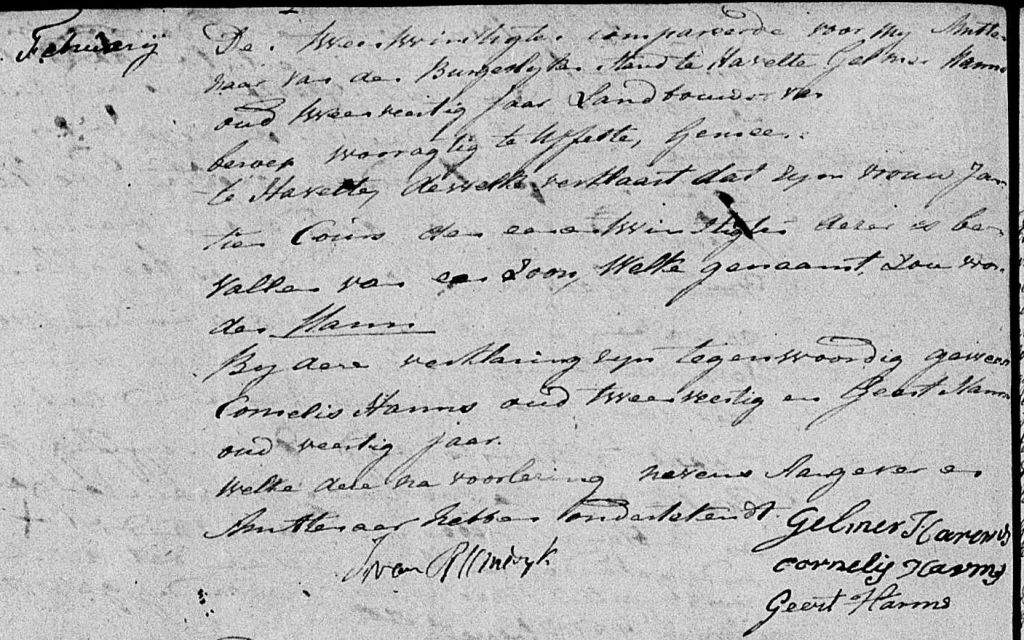 Februarij
De tweeentwintigste compareerde voor my Ambte
naar van den Burgerlyken Stand te Havelte Gelmer Harms
oud tweeveertig jaar Landbouwer van
beroep woonagtig te Uffelte, Gemeen
te Havelte, dewelke verklaart dat zyn vrouw Jan
tien Coers den eenentwintigste dezer is be
vallen van een Zoon, welke genaamt zou wor
den Harm
By deze verklaring zyn tegenswoordig geween
Cornelis Harms oud tweeveertig en Geert Harms
oud veertig jaar.
Welke deze na voorlezing nevens Aangever en
Ambtenaar hebben onderteekendt.
Gelmer Harms
cornelis Harms
Geert Harms